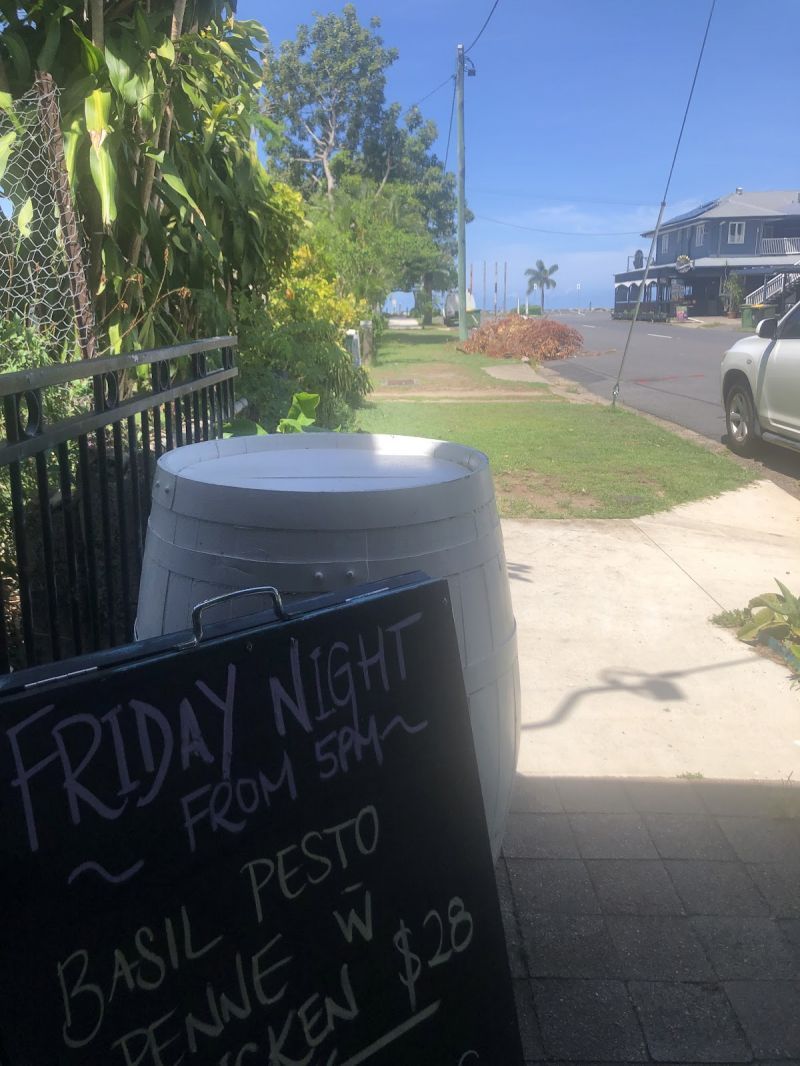 FRIDAY NIGHT
FROM 5PM~
~
BASIL PESTO
PENNE W̄
CHICKEN $28